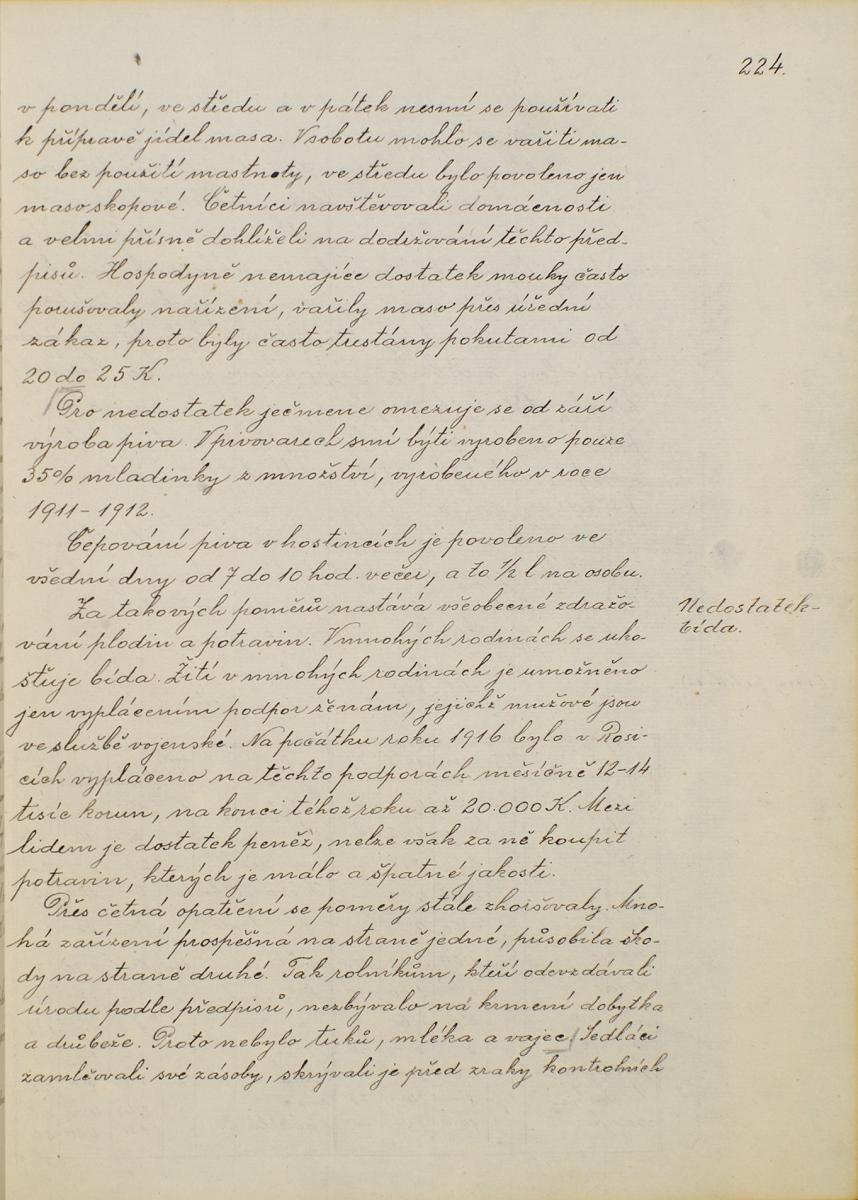 224.
v pondělí, ve středu a v pátek nesmí se používati
k přípravě jídel masa. V sobotu mohlo se vařiti ma-
so bez použití mastnoty, ve středu bylo povoleno jen
maso skopové. Četníci navštěvovali domácnosti
a velmi přísně dohlíželi na dodržování těchto před-
pisů. Hospodyně nemajíce dostatek mouky často
porušovaly nařízení, vařily maso přes úřední
zákaz, proto byly často trestány pokutami od
20 do 25 K.
Pro nedostatek ječmene omezuje se od září
výroba piva. V pivovarech smí býti vyrobeno pouze
35% mladinky z množství, vyrobeného v roce
1911-1912.
Čepování piva v hostincích je povoleno ve
všední dny od 7 do 10 hod. večer, a to 1/2 l na osobu.
Za takových poměrů nastává všeobecné zdražo-
vání plodin a potravin. V mnohých rodinách se uho-
šťuje bída. Žití v mnohých rodinách je umožněno
jen vyplácením podpor ženám, jejichž mužové jsou
ve službě vojenské. Na počátku roku 1916 bylo v Rosi-
cích vypláceno na těchto podporách měsíčně 12-14
tisíc korun, na konci téhož roku až 20.000 K. Mezi
lidem je dostatek peněz, nelze však za ně koupit
potravin, kterých je málo a špatné jakosti.
Přes četná opatření se poměry stále zhoršovaly. Mno-
há zařízení prospěšná na straně jedné, působila ško-
dy na straně druhé. Tak rolníkům, kteří odevzdávali
úrodu podle předpisů, nezbývalo na krmení dobytka
a drůbeže. Proto nebylo tuků, mléka a vajec. Sedláci
zamlčovali své zásoby, skrývali je před zraky kontrolních
Nedostatek-
bída.